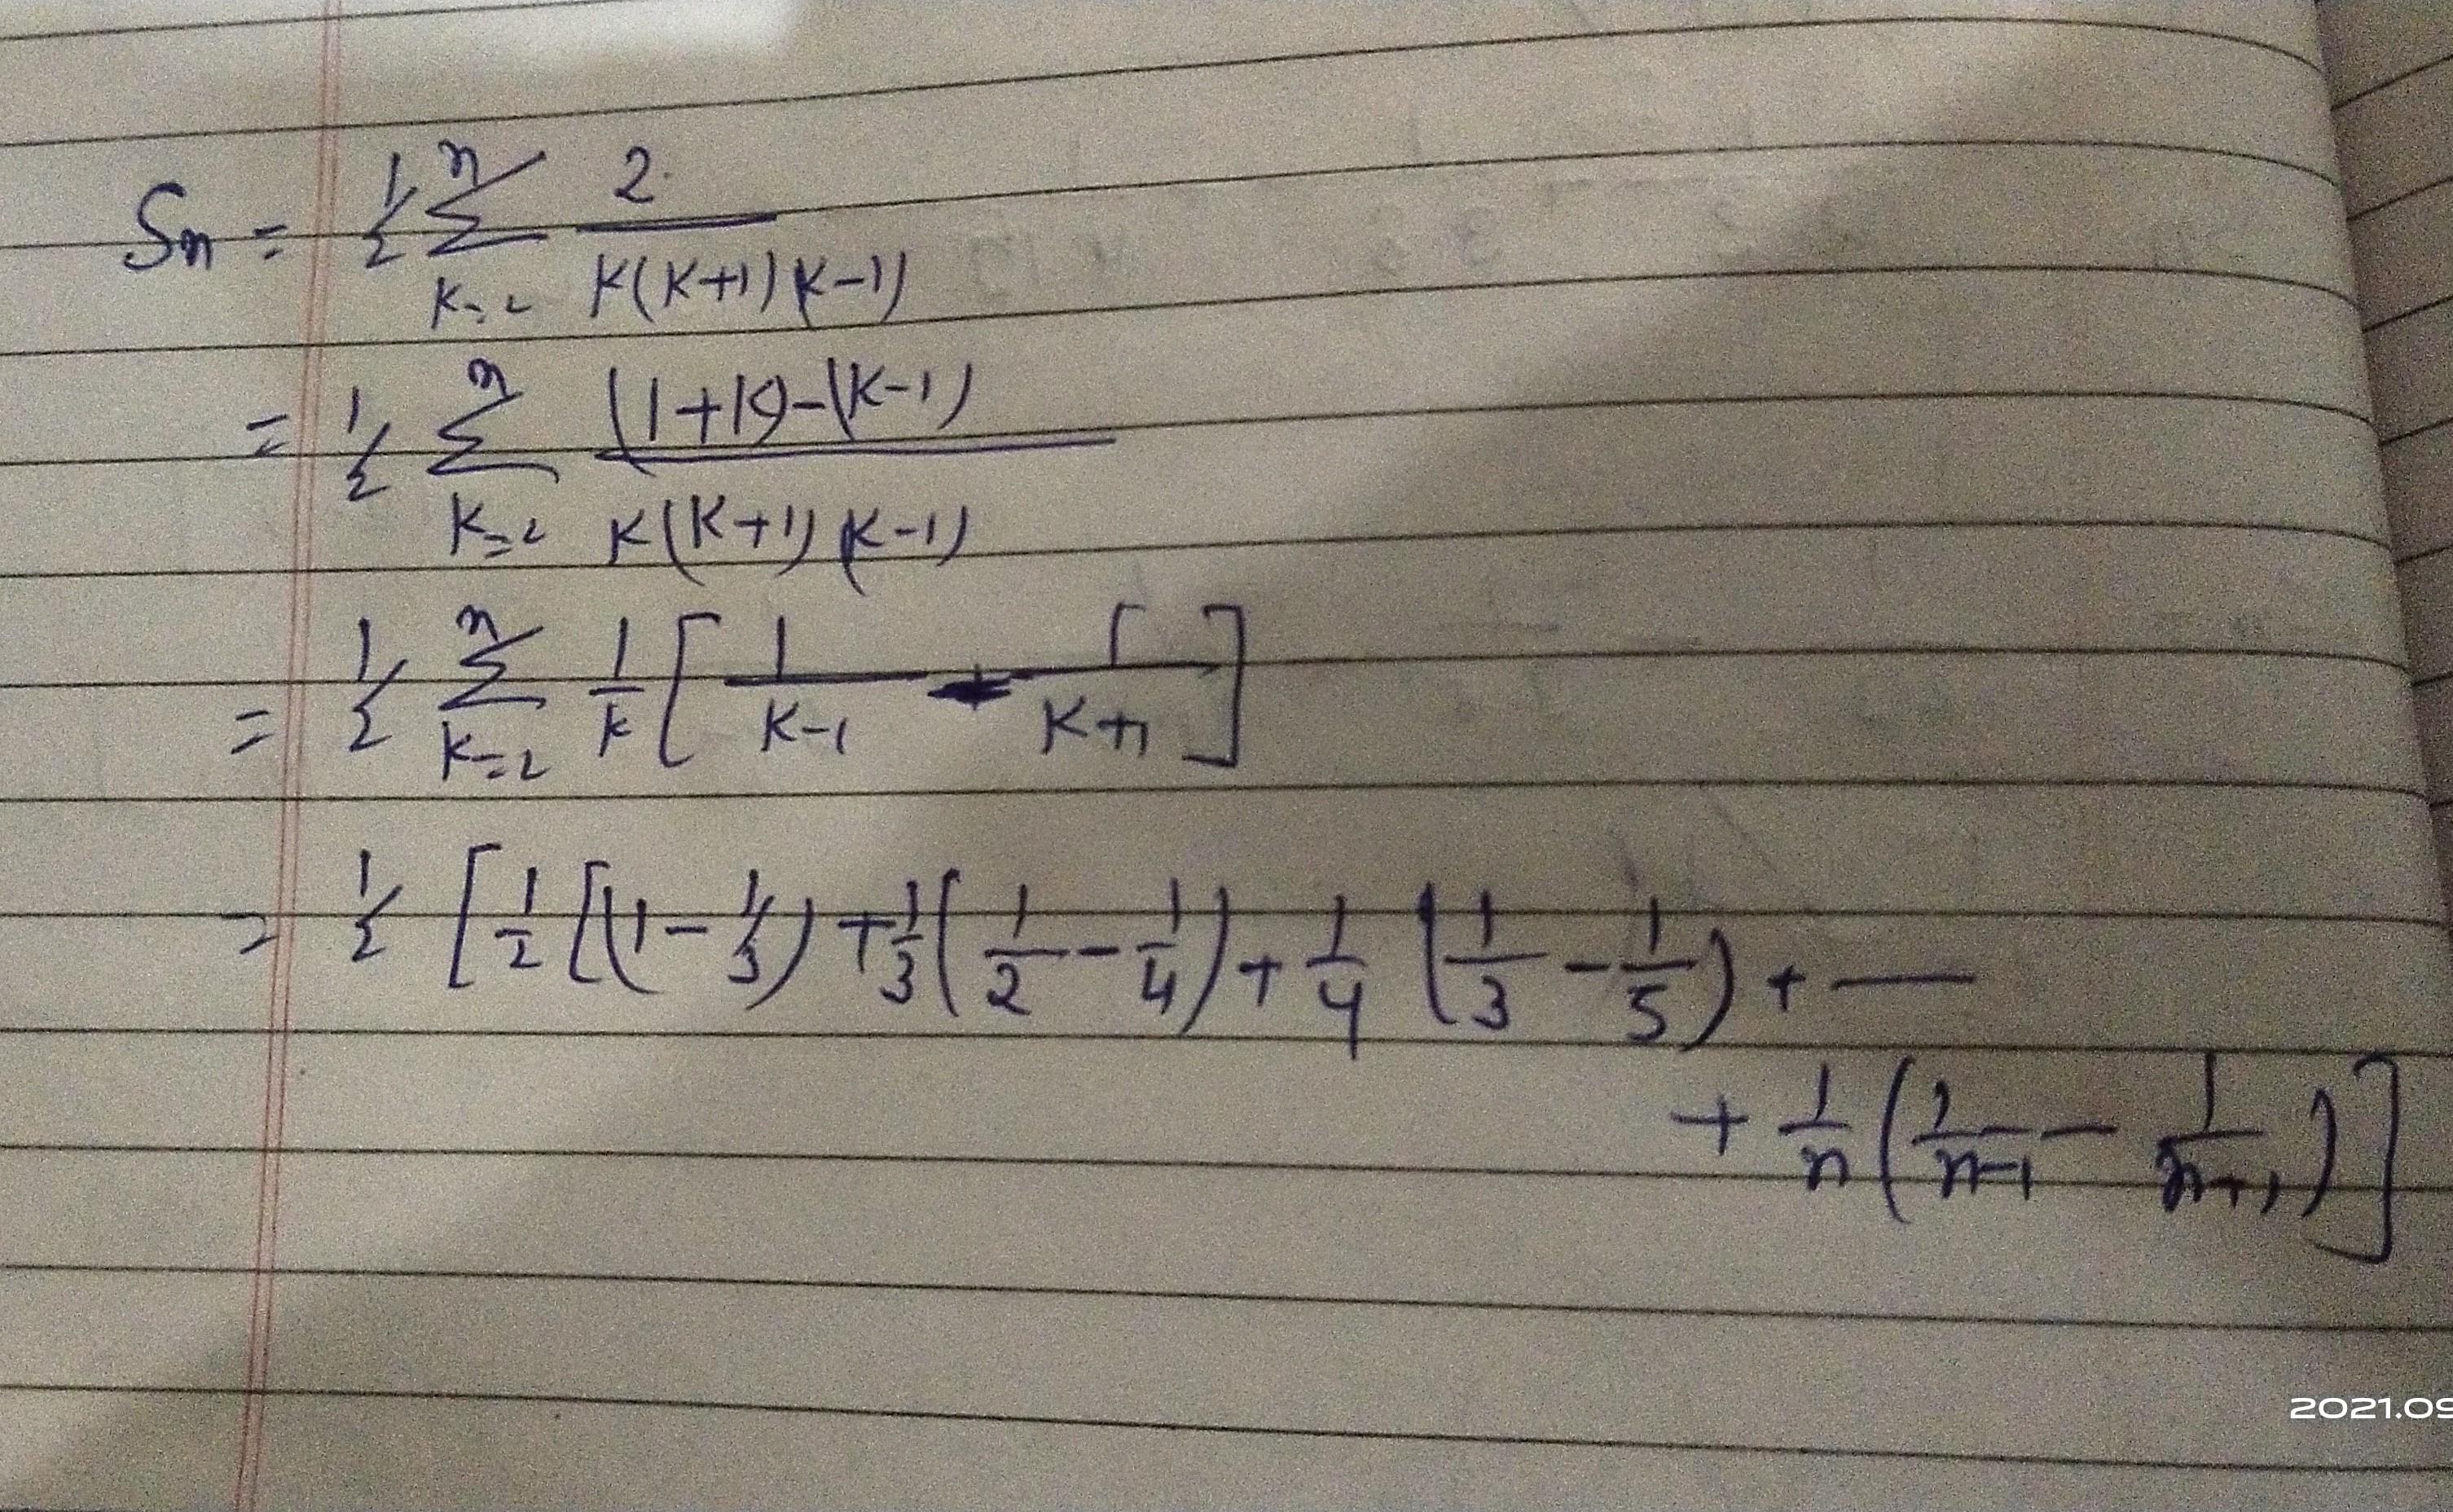 Sn = 1/2 n∑k=2 2/K(K+1)(K-1)
= 1/2 n∑k=2 (1+K)-(K-1)/K(K+1)(K-1)
= 1/2 n∑k=2 1/K [1/K-1 - 1/K+1]
= 1/2 [1/2 [(1-1/3) + 1/3 (1/2 - 1/4) + 1/4 (1/3 - 1/5) + —
+ 1/n (1/n-1 - 1/n+1)]
2021.09